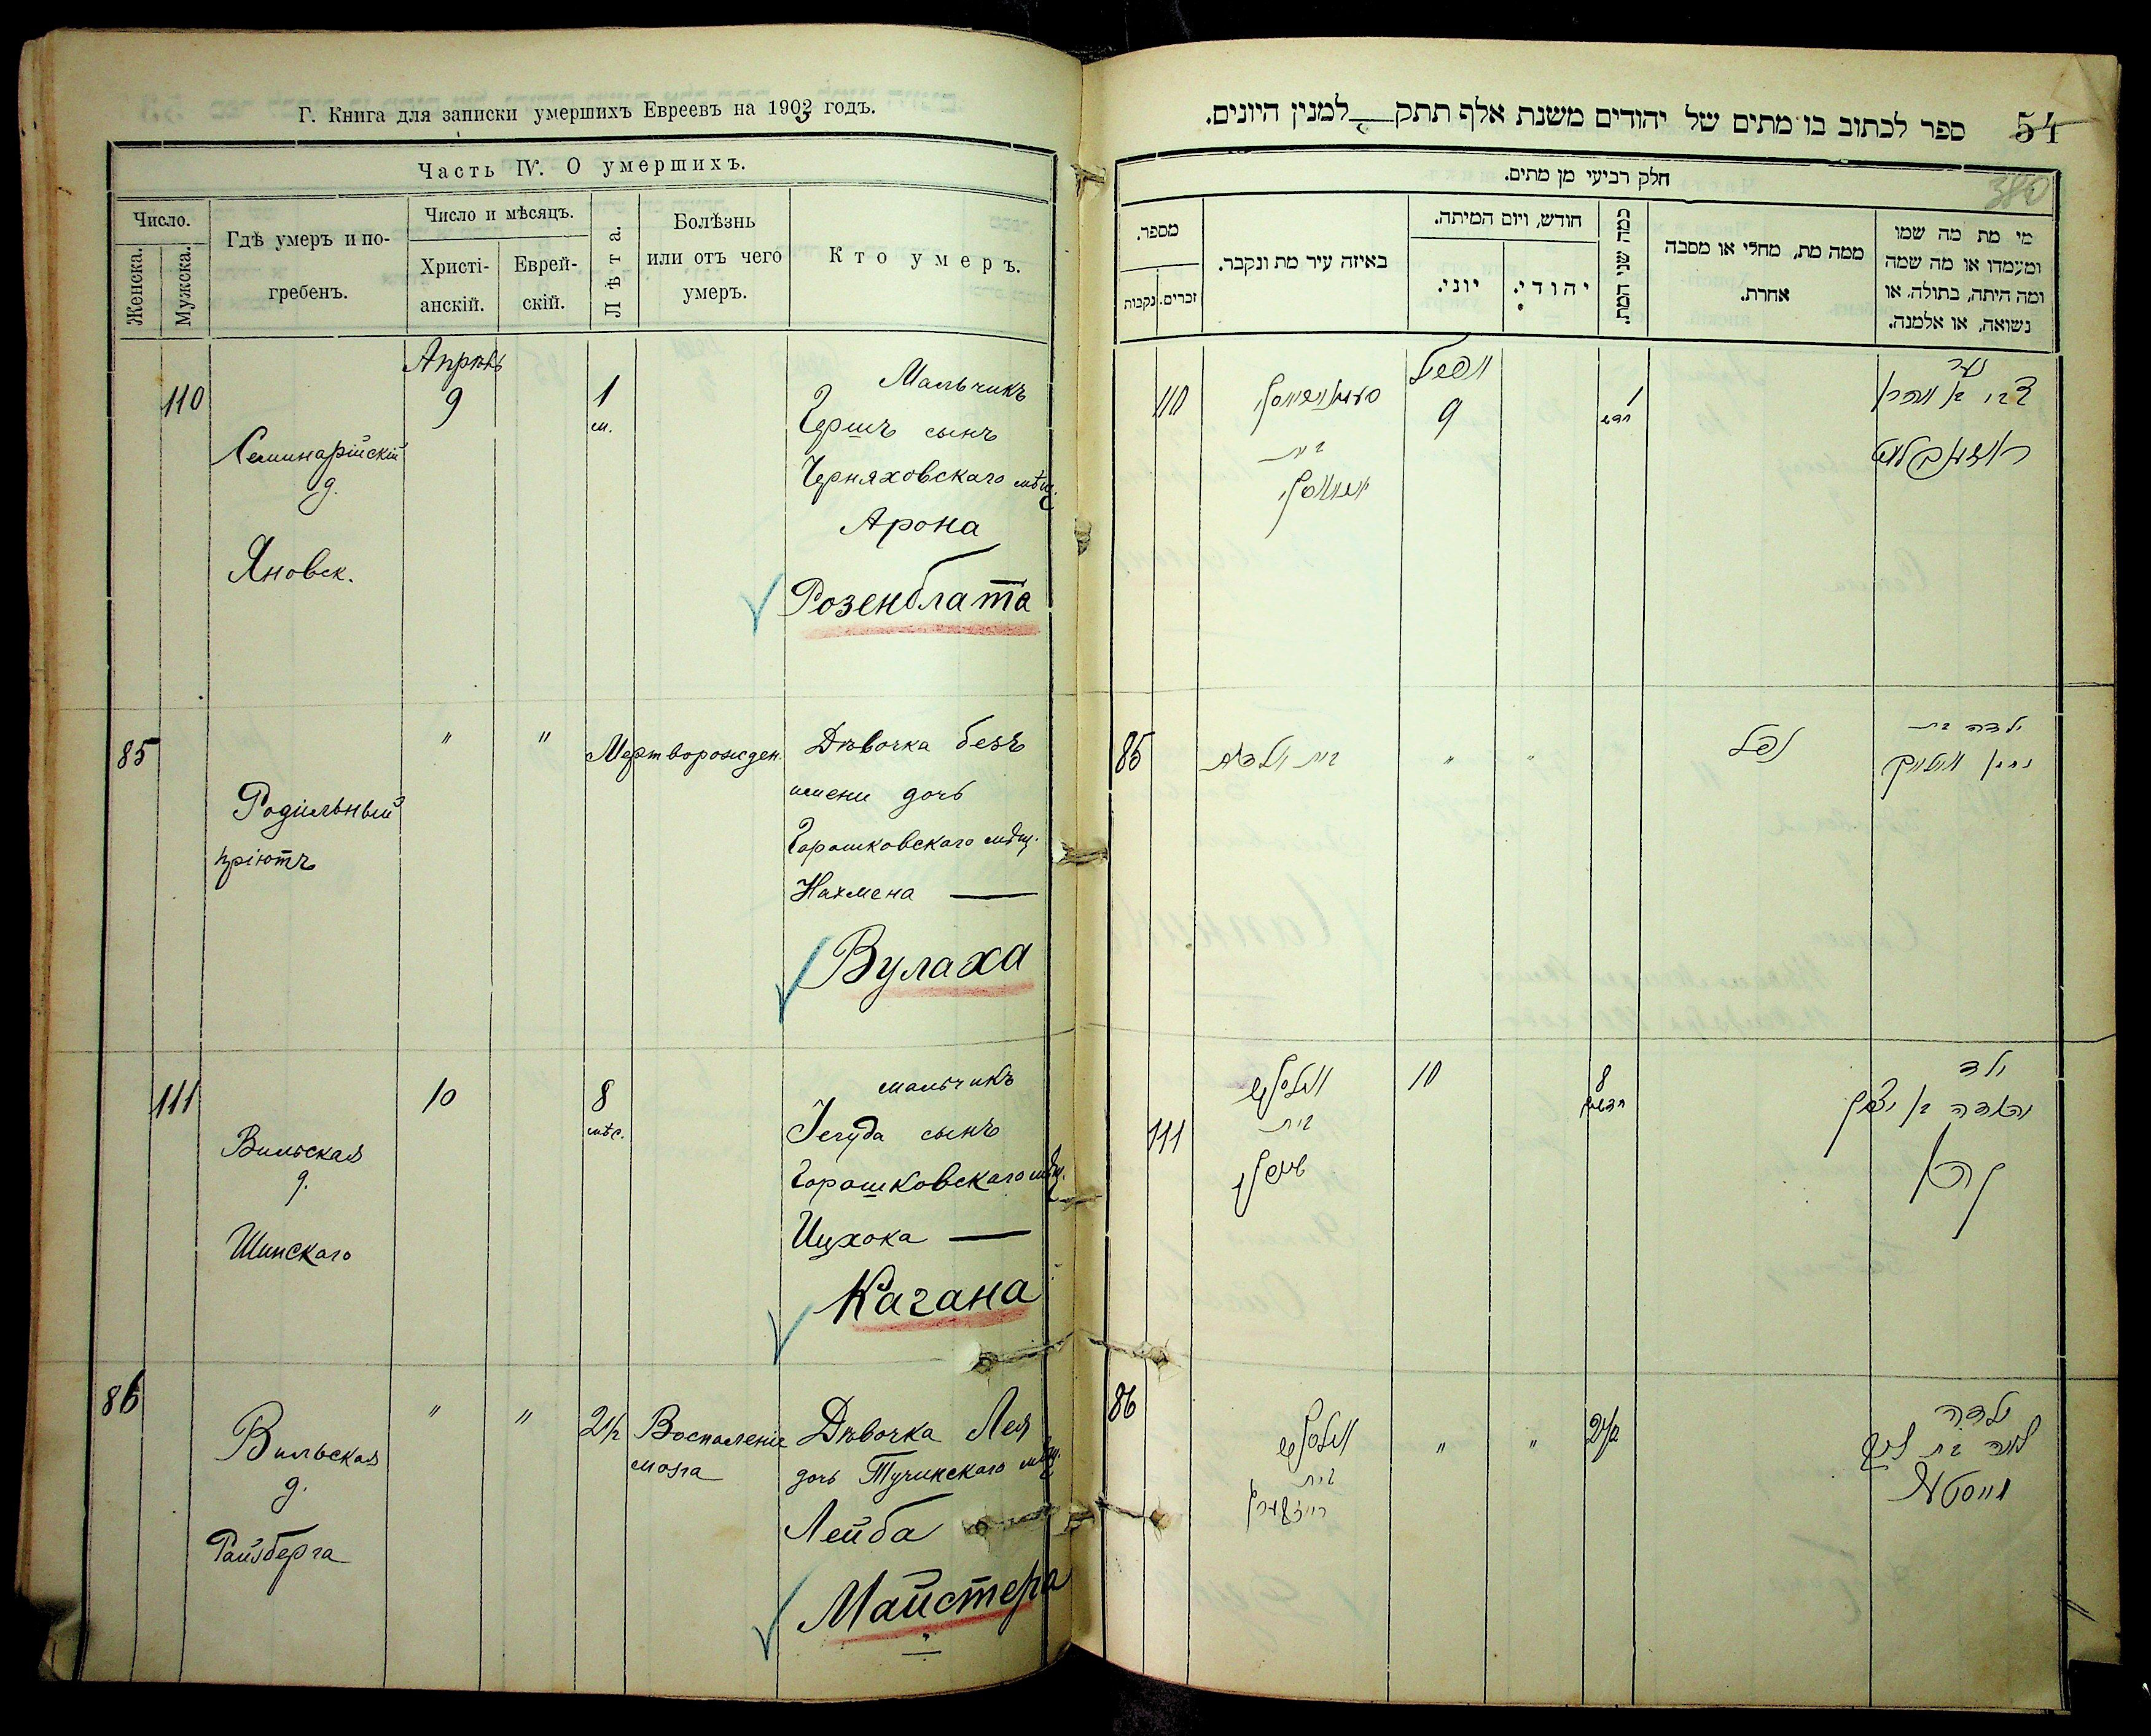 Г. Книга для записки умершихъ Евреевъ на 1903 годъ.
Часть IV. О умершихъ.
Число.
Женска.
Мужска.
Гдѣ умеръ и по-
гребенъ.
Число и мѣсяцъ.
Христі-
анскій.
Еврей-
скій.
Лѣта.
Болѣзнь
или отъ чего
умеръ.
Кто умеръ.
110
Семинарійскій
д.
Яновск.
Апрѣль
9
1
м.
Мальчикъ
Гершъ сынъ
Черняховскаго мѣщ.
Арона
Розенблата
85
Родильный
пріютъ
"
"
Мертворожден.
Дѣвочка безъ
имени дочь
Горошковскаго мѣщ.
Нахмена —
Вулаха
111
Вильская
д.
Шинскаго
10
8
мѣс.
мальчикъ
Іегуда сынъ
Горошковскаго мѣщ.
Ицхока —
Кагана
86
Вильская
д.
Райзберга
"
"
2 1/2
Воспаленіе
мозга
Дѣвочка Лея
дочь Тучинскаго мѣщ.
Лейба
Майстера
54
ספר לכתוב בו מתים של יהודים משנת אלף תתק__למנין היונים.
380
חלק רביעי מן מתים.
מספר.
זכרים.
נקבות
באיזה עיר מת ונקבר.
חודש, ויום המיתה.
יוני.
יהודי.
כמה שני המת.
ממה מת, מחלי או מסבה
אחרת.
מי מת מה שמו
ומעמדו או מה שמה
ומה היתה, בתולה. או
נשואה, או אלמנה.
110
בית
אפריל
9
1
חדש
85
"
"
נפל
ילדה בת
נחמן וואלאך
111
בית
10
8
חדשים
ילד
יהודה בן יצחק
כהן
86
בית
רייזבערג
"
"
2 1/2
ילדה
לאה בת ליב
מייסטער